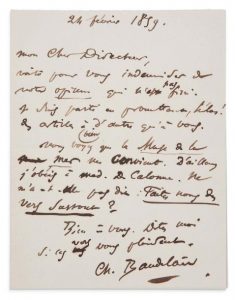 24 février 1859.
mon cher Directeur,
voilà pour vous indemniser de
votre opium qui n'est pas fini.
et suis parti en promeneur, hélas!
des articles à d'autres qu'à vous.
vous voyez que la Muse de la
mer me convient. D'ailleurs
j'obéis à mad. de Calonne. Ne
m'a-t-elle pas dit: Faites nous des
vers surtout?
Bien à vous. Dites moi
si ces vers vous plaisent.
Ch. Baudelaire